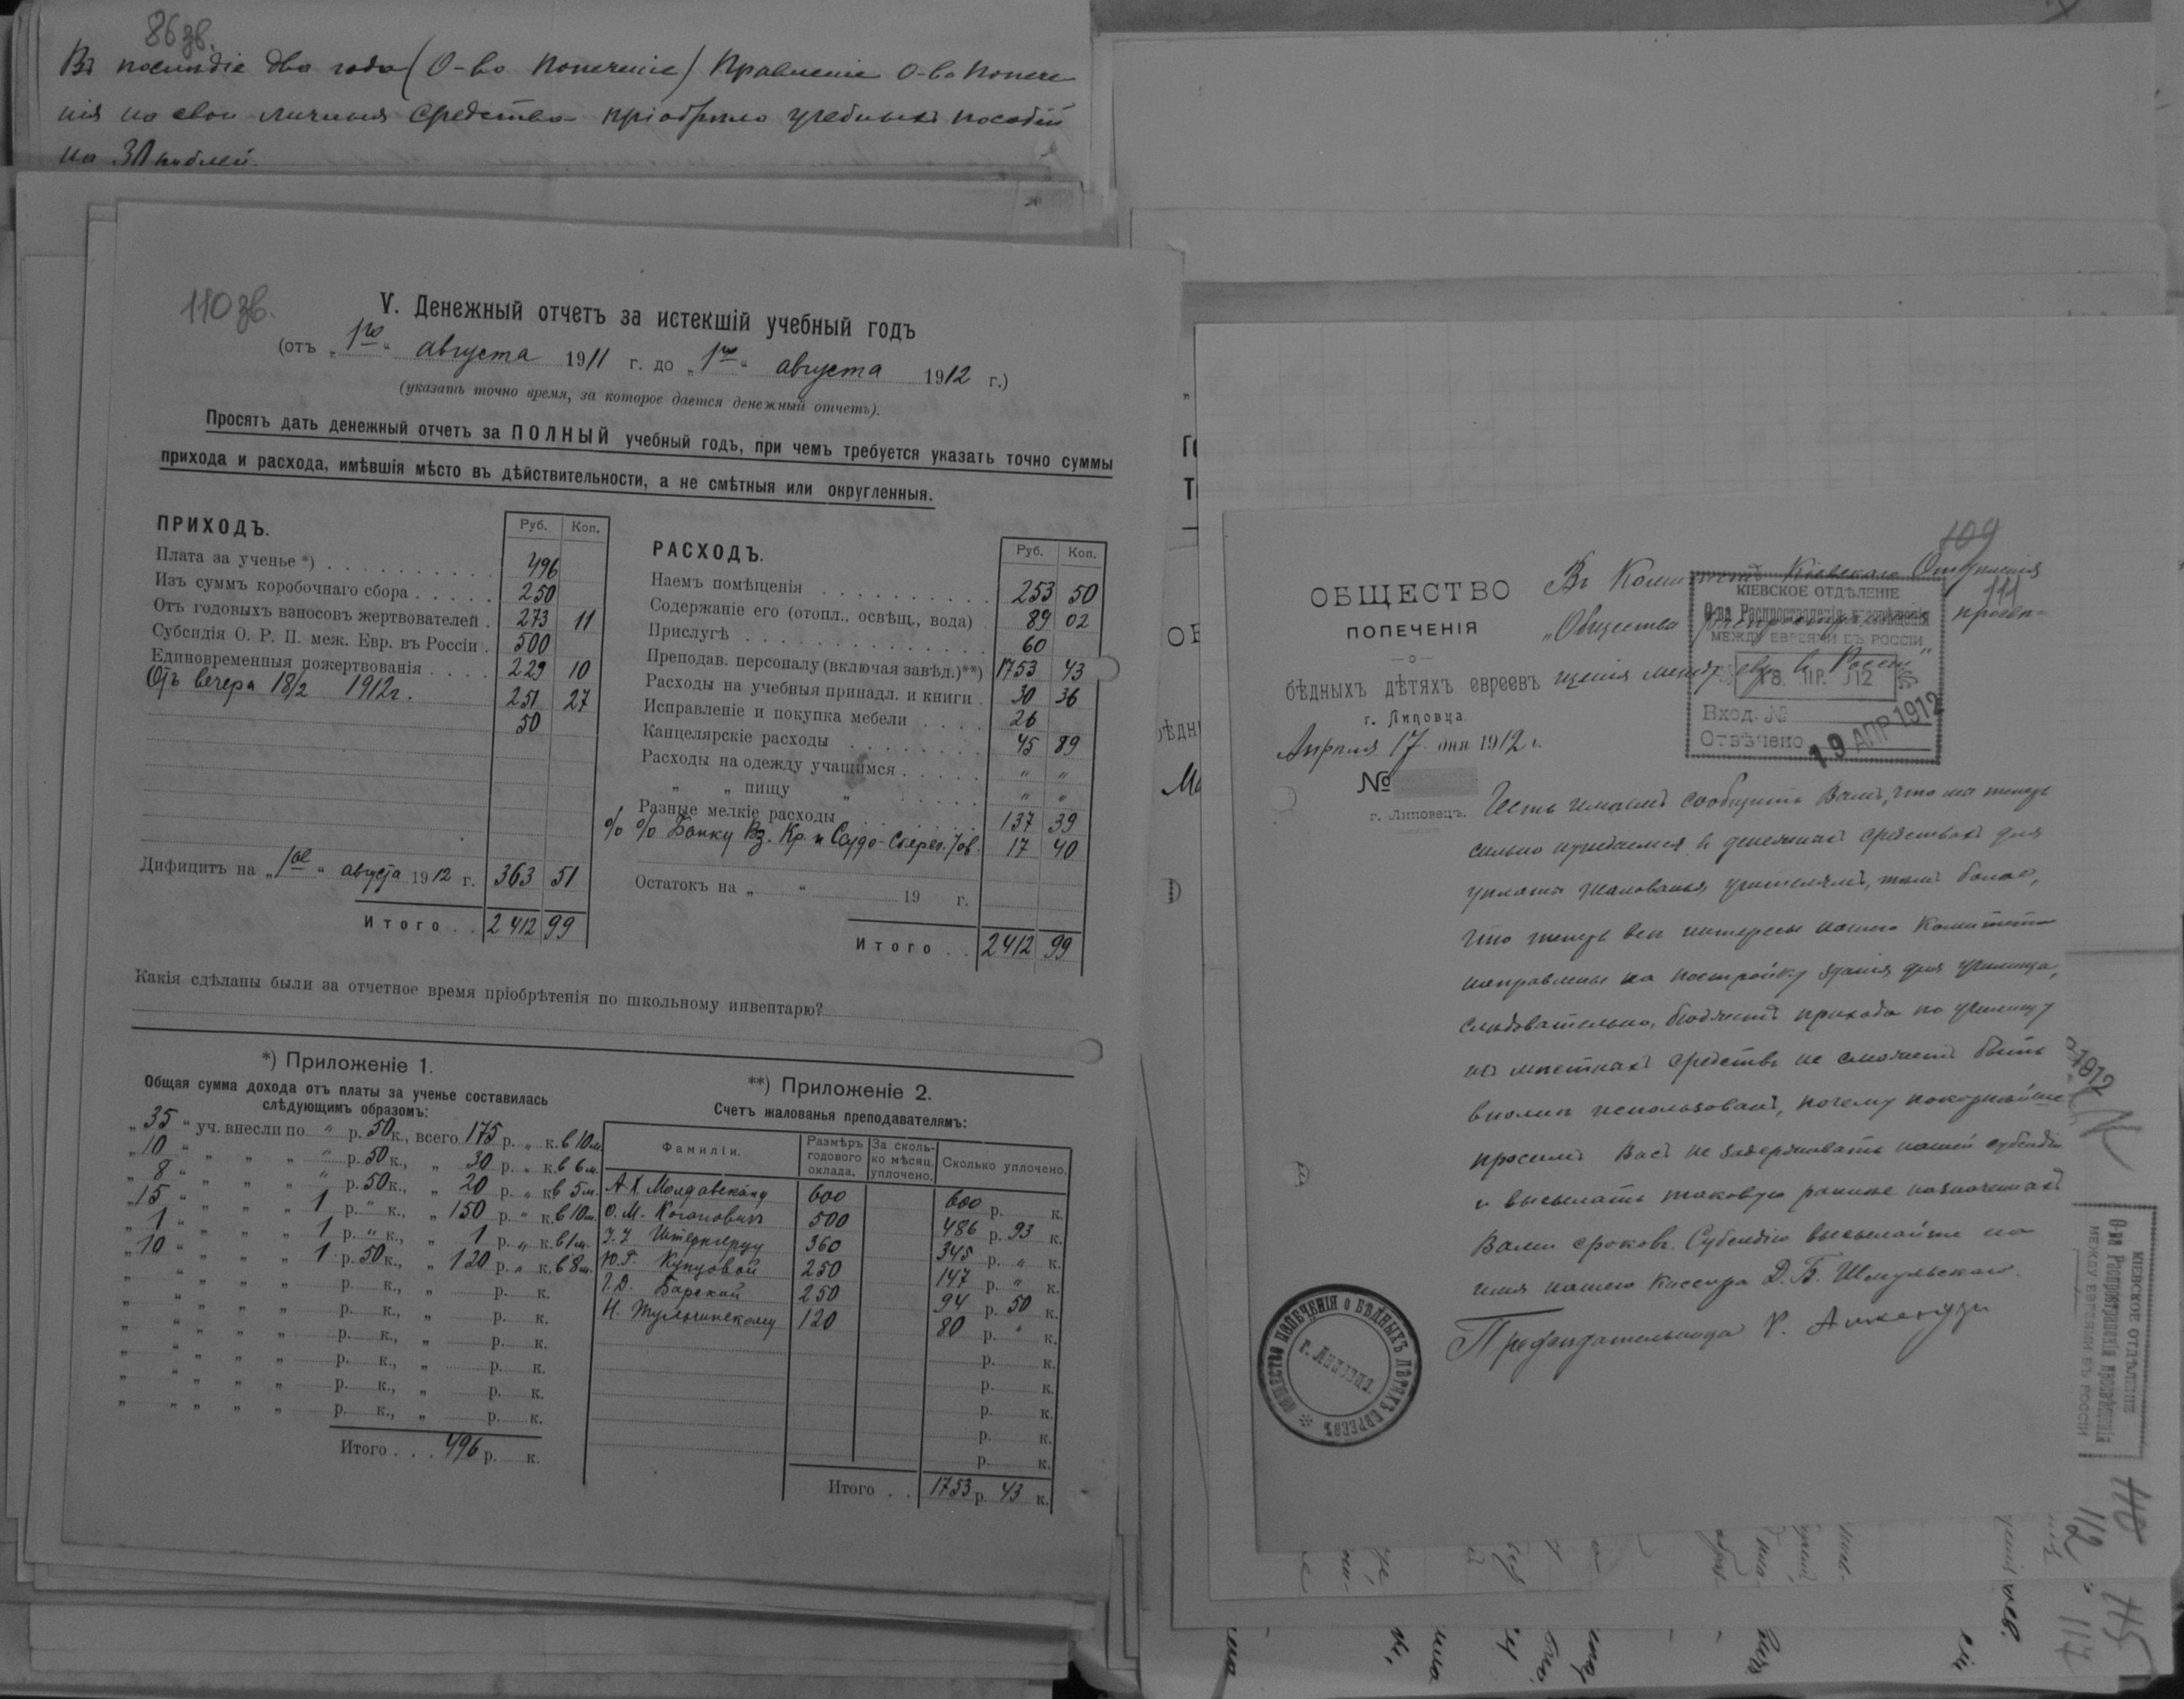 86 зв.
Въ послѣдніе два года (О-во Попеченіе) Правленіе О-ва Попече
нія на свои личныя средства пріобрѣло учебныхъ пособій
на 30 рублей
110 зв.
V. Денежный отчетъ за истекшій учебный годъ
(отъ „1го“ августа 1911 г. до „1го“ августа 1912 г.)
(указать точно время, за которое дается денежный отчетъ).
Просятъ дать денежный отчетъ за ПОЛНЫЙ учебный годъ, при чемъ требуется указать точно суммы
прихода и расхода, имѣвшія мѣсто въ дѣйствительности, а не смѣтныя или округленныя.
ПРИХОДЪ. Руб. Коп.
Плата за ученье *) 496
Изъ суммъ коробочнаго сбора 250
Отъ годовыхъ взносовъ жертвователей 273 11
Субсидія О. Р. П. меж. Евр. въ Россіи 500
Единовременныя пожертвованія 229 10
Отъ вечера 18/2 1912 г. 251 27
50
Дифицитъ на „1ое“ августа 1912 г. 363 51
Итого 2412 99
РАСХОДЪ. Руб. Коп.
Наемъ помѣщенія 253 50
Содержаніе его (отопл., освѣщ., вода) 89 02
Прислугѣ 60
Преподав. персоналу (включая завѣд.) **) 1753 43
Расходы на учебныя принадл. и книги 30 36
Исправленіе и покупка мебели 26
Канцелярскіе расходы 45 89
Расходы на одежду учащимся „ „
„ „ пищу „ „ „
Разные мелкіе расходы 137 39
% % Банку Вз. Кр. и Ссудо-Сберег. Тов. 17 40
Остатокъ на „ “ 19 г.
Итого 2412 99
Какія сдѣланы были за отчетное время пріобрѣтенія по школьному инвентарю?
*) Приложеніе 1.
Общая сумма дохода отъ платы за ученье составилась
слѣдующимъ образомъ:
„35“ уч. внесли по „ р. 50 к., всего 175 р. „ к. в 10 м.
„10“ „ „ „ „ р. 50 к., „ 30 р. „ к. в 6 м.
„8“ „ „ „ „ р. 50 к., „ 20 р. „ к. в 5 м.
„15“ „ „ „ 1 р. „ к., „ 150 р. „ к. в 10 м.
„1“ „ „ „ 1 р. „ к., „ 1 р. „ к. в 1 м.
„10“ „ „ „ 1 р. 50 к., „ 120 р. „ к. в 8 м.
„ “ „ „ „ р. к., „ р. к.
„ “ „ „ „ р. к., „ р. к.
„ “ „ „ „ р. к., „ р. к.
„ “ „ „ „ р. к., „ р. к.
„ “ „ „ „ р. к., „ р. к.
„ “ „ „ „ р. к., „ р. к.
Итого . . . 496 р. к.
**) Приложеніе 2.
Счетъ жалованья преподавателямъ:
Фамиліи. Размѣръ годового оклада. За сколь-ко мѣсяц. уплочено. Сколько уплочено.
А. Х. 600 600 р. к.
О. М. 500 486 р. 93 к.
360 345 р. „ к.
Ю. Г. Купцовой 250 147 р. „ к.
Г. Д. Барской 250 94 р. 50 к.
Н. Тульчинскому 120 80 р. „ к.
р. к.
р. к.
р. к.
р. к.
р. к.
Итого . . 1753 р. 43 к.
109
111
ОБЩЕСТВО
ПОПЕЧЕНІЯ
о
бѣдныхъ дѣтяхъ евреевъ
г. Липовца
Апрѣля 17 дня 1912 г.
№
г. Липовецъ.
Въ Комитетъ Кіевскаго Отдѣленія
„Общества распространенія просвѣ-
щенія между евр. в Россіи“
КІЕВСКОЕ ОТДѢЛЕНІЕ
О-ва Распространенія просвѣщенія
МЕЖДУ ЕВРЕЯМИ ВЪ РОССІИ
Вход. №
Отвѣчено 19 АПР 1912
Честь имѣемъ сообщить Вамъ, что мы теперь
сильно нуждаемся в денежныхъ средствахъ для
уплаты жалованья учителямъ, тѣмъ болѣе,
что теперь всѣ интересы нашего Комитета
направлены на постройку зданія для училища,
слѣдовательно, бюджетъ прихода по училищу
изъ мѣстныхъ средствъ не сможетъ быть
вполнѣ использованъ, почему покорнѣйше
просимъ Васъ не задерживать нашей субсидіи
и высылать таковую раньше назначенныхъ
Вами сроковъ. Субсидію высылайте на
имя нашего кассира Д. Б. Шмульскаго.
Предсѣдательница
ОБЩЕСТВО ПОПЕЧЕНІЯ о БѢДНЫХЪ ДѢТЯХЪ ЕВРЕЕВЪ
г. Липовецъ.
1912
КІЕВСКОЕ ОТДѢЛЕНІЕ
О-ва Распространенія просвѣщенія
МЕЖДУ ЕВРЕЯМИ ВЪ РОССІИ
110
112
115
117